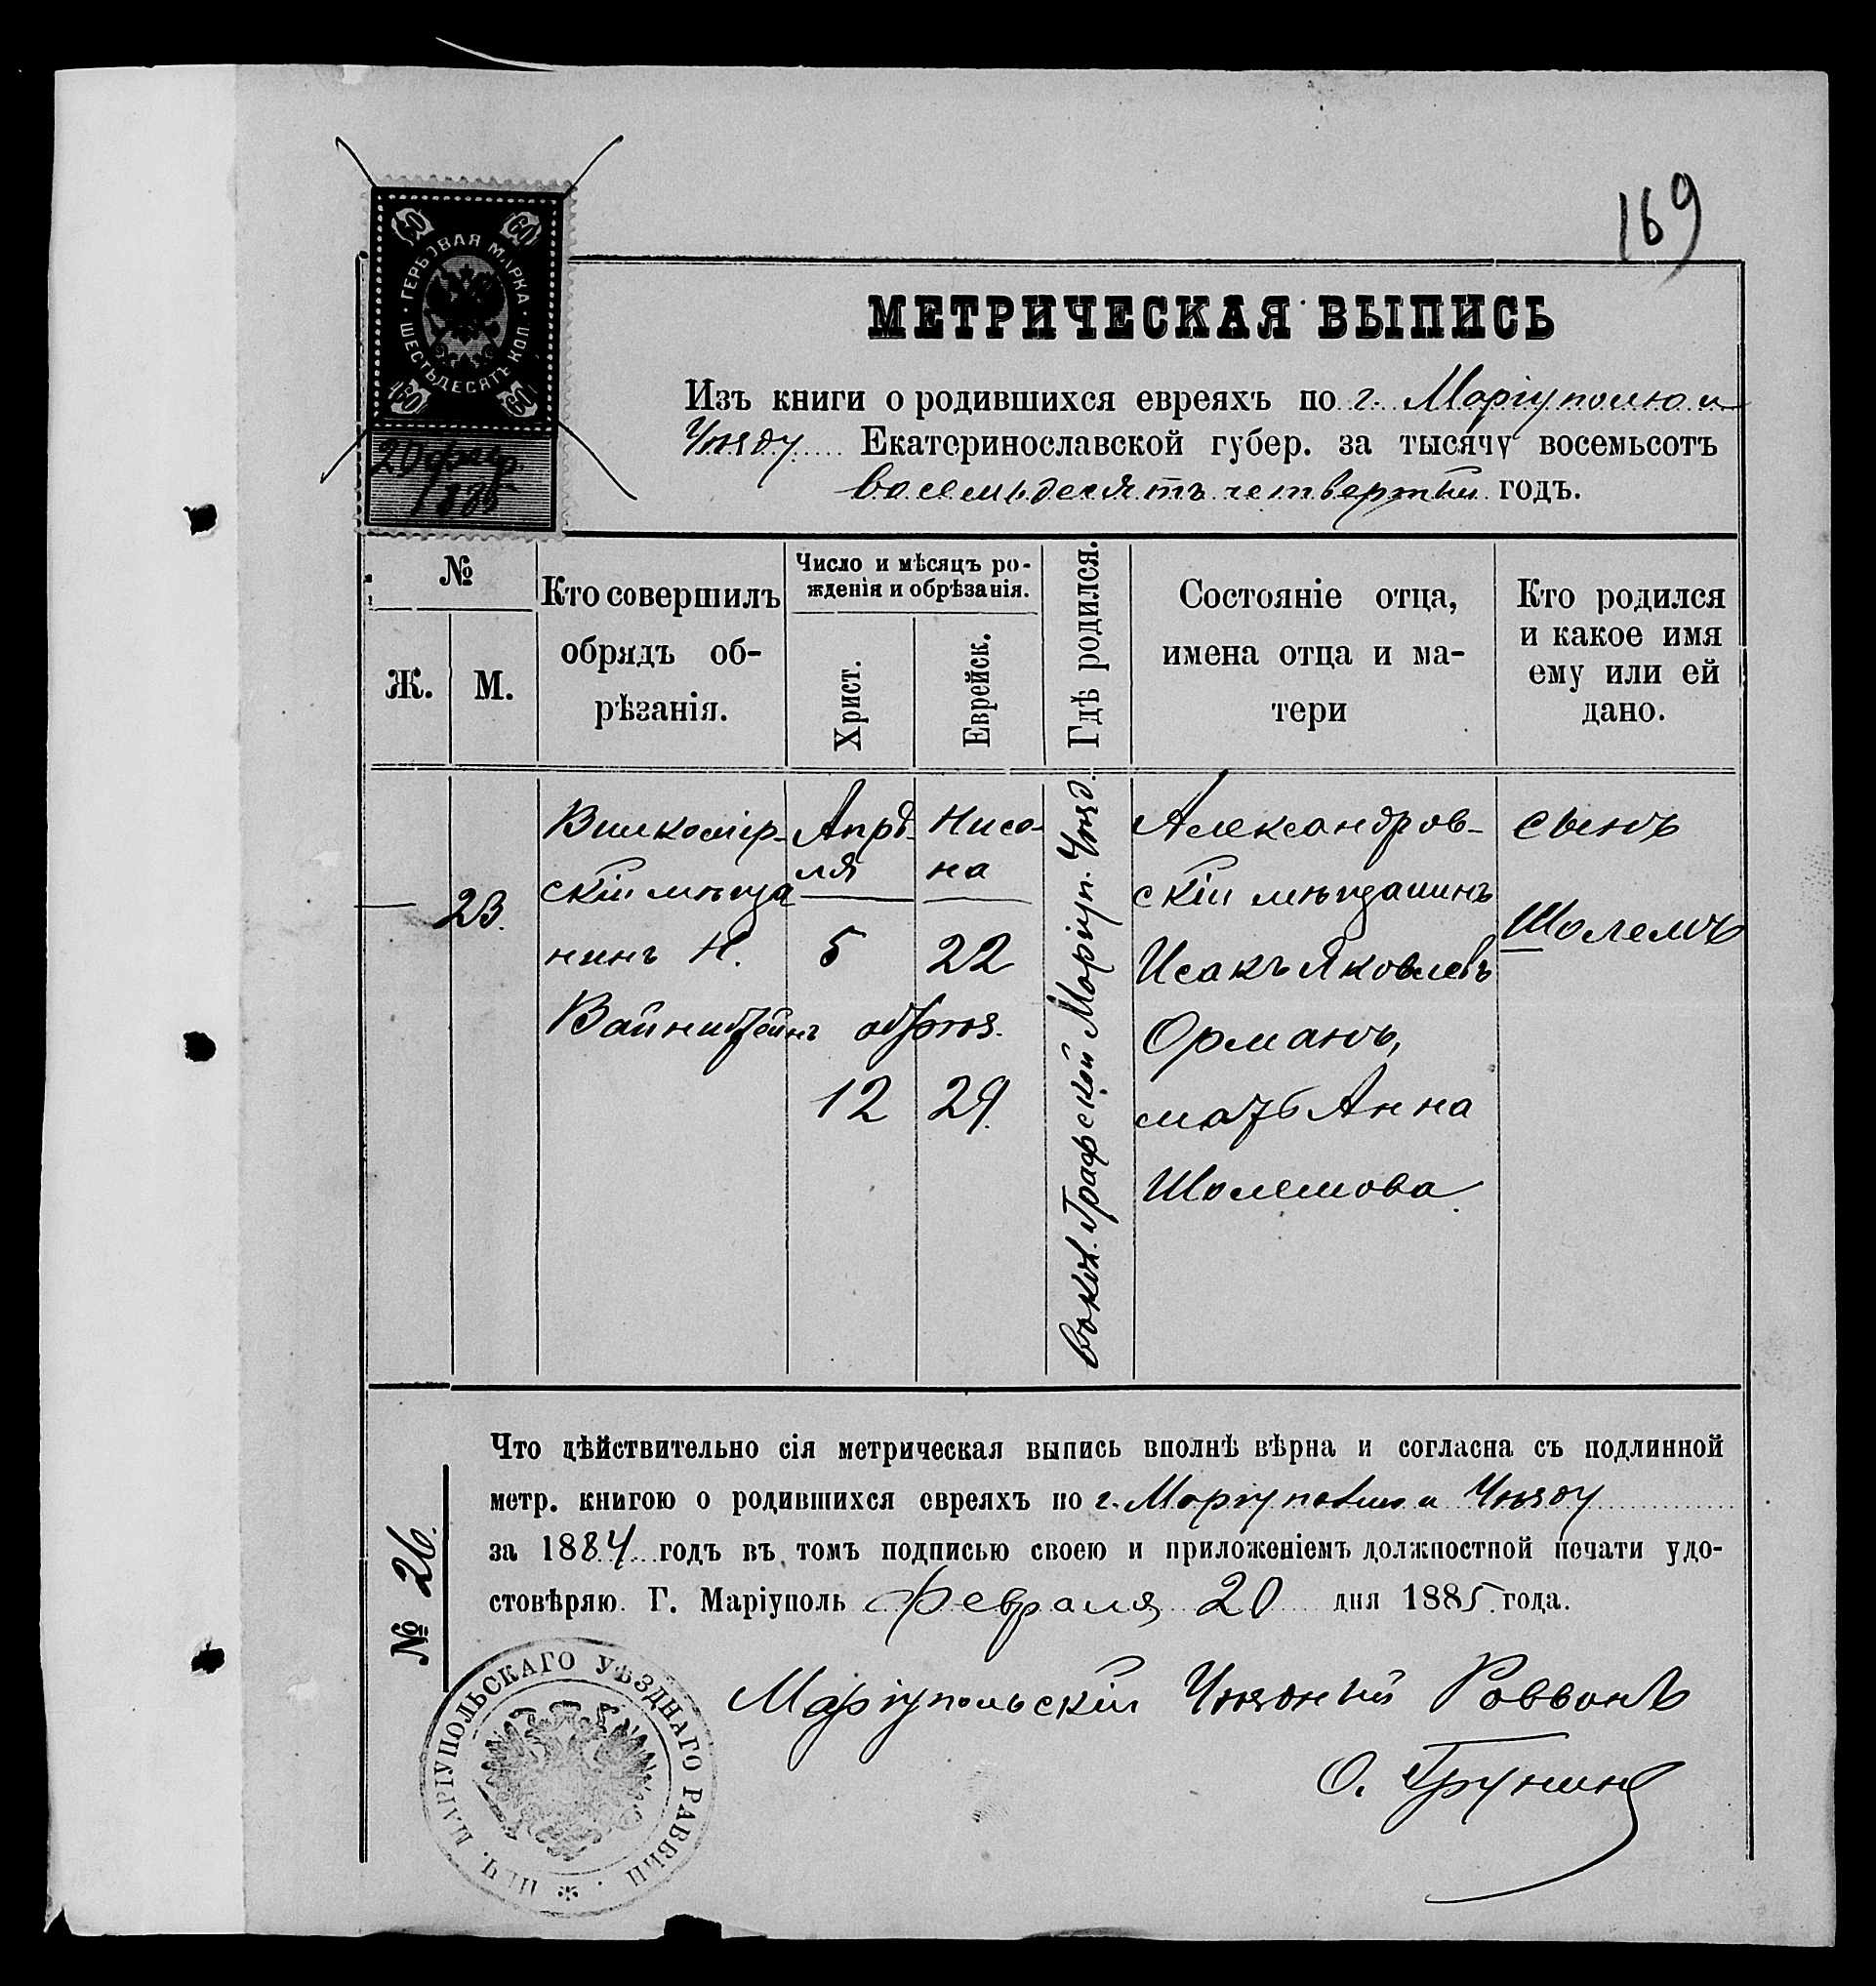 169
ГЕРБОВАЯ МАРКА
ШЕСТЬДЕСЯТЪ КОП
60 60
60 60
20 февр.
1885
МЕТРИЧЕСКАЯ ВЫПИСЬ
Изъ книги о родившихся евреяхъ по г. Маріуполю и
Уѣзду Екатеринославской губер. за тысячу восемьсотъ
восемьдесятъ четвертый годъ.
№
Ж.
М.
Кто совершилъ
обрядъ об-
рѣзанія.
Число и мѣсяцъ ро-
жденія и обрѣзанія.
Христ.
Еврейск.
Гдѣ родился.
Состояніе отца,
имена отца и ма-
тери
Кто родился
и какое имя
ему или ей
дано.
—
23.
Вилкомір-
скій мѣща
нинъ Н.
Вайнштейнъ
Апрѣ-
ля
5
обрѣз.
12
Ниса-
на
22
29.
в кол. Графской Маріуп. Уѣзд.
Александров-
скій мѣщанинъ
Исакъ Яковлевъ
Орманъ,
мать Анна
Шолемова
сынъ
Шолемъ
Что дѣйствительно сія метрическая выпись вполнѣ вѣрна и согласна съ подлинной
метр. книгою о родившихся евреяхъ по г. Маріуполю и Уѣзду
за 1884 годъ въ томъ подписью своею и приложеніемъ должностной печати удо-
стовѣряю. Г. Маріуполь Февраля 20 дня 1885 года.
№ 26.
Маріупольскій Уѣздный Раввинъ
О. Грунинъ
ПЕЧ. МАРІУПОЛЬСКАГО УѢЗДНАГО РАВВИН